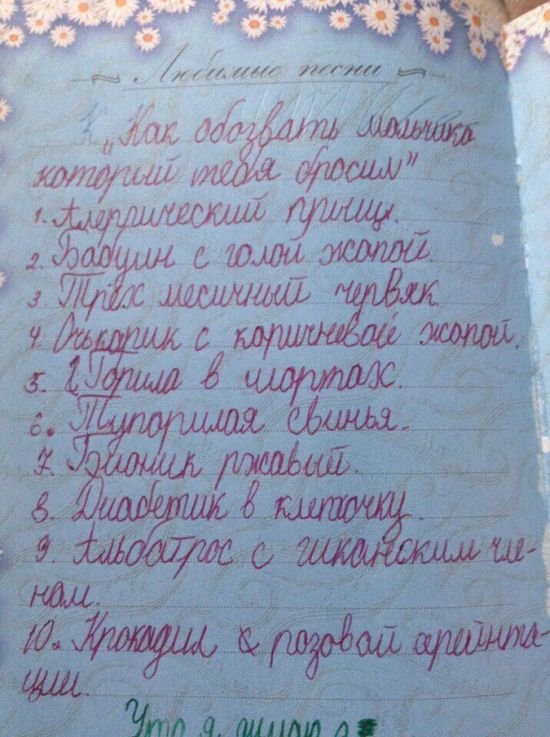 Любимые песни
„Как обозвать мальчика
который тебя бросил"
1. Алеррический прищ.
2. Бабуин с голой жопой.
3. Трёх месичный червяк
4. Очькорик с коричневой жопой.
5. Горила в шортах.
6. Тупорилая свинья.
7. Бионик ржавый.
8. Диабетик в клеточку.
9. Альбатрос с гиканским чле-
ном.
10. Крокадил с розовой арейнта-
ции.
Что я думаю о